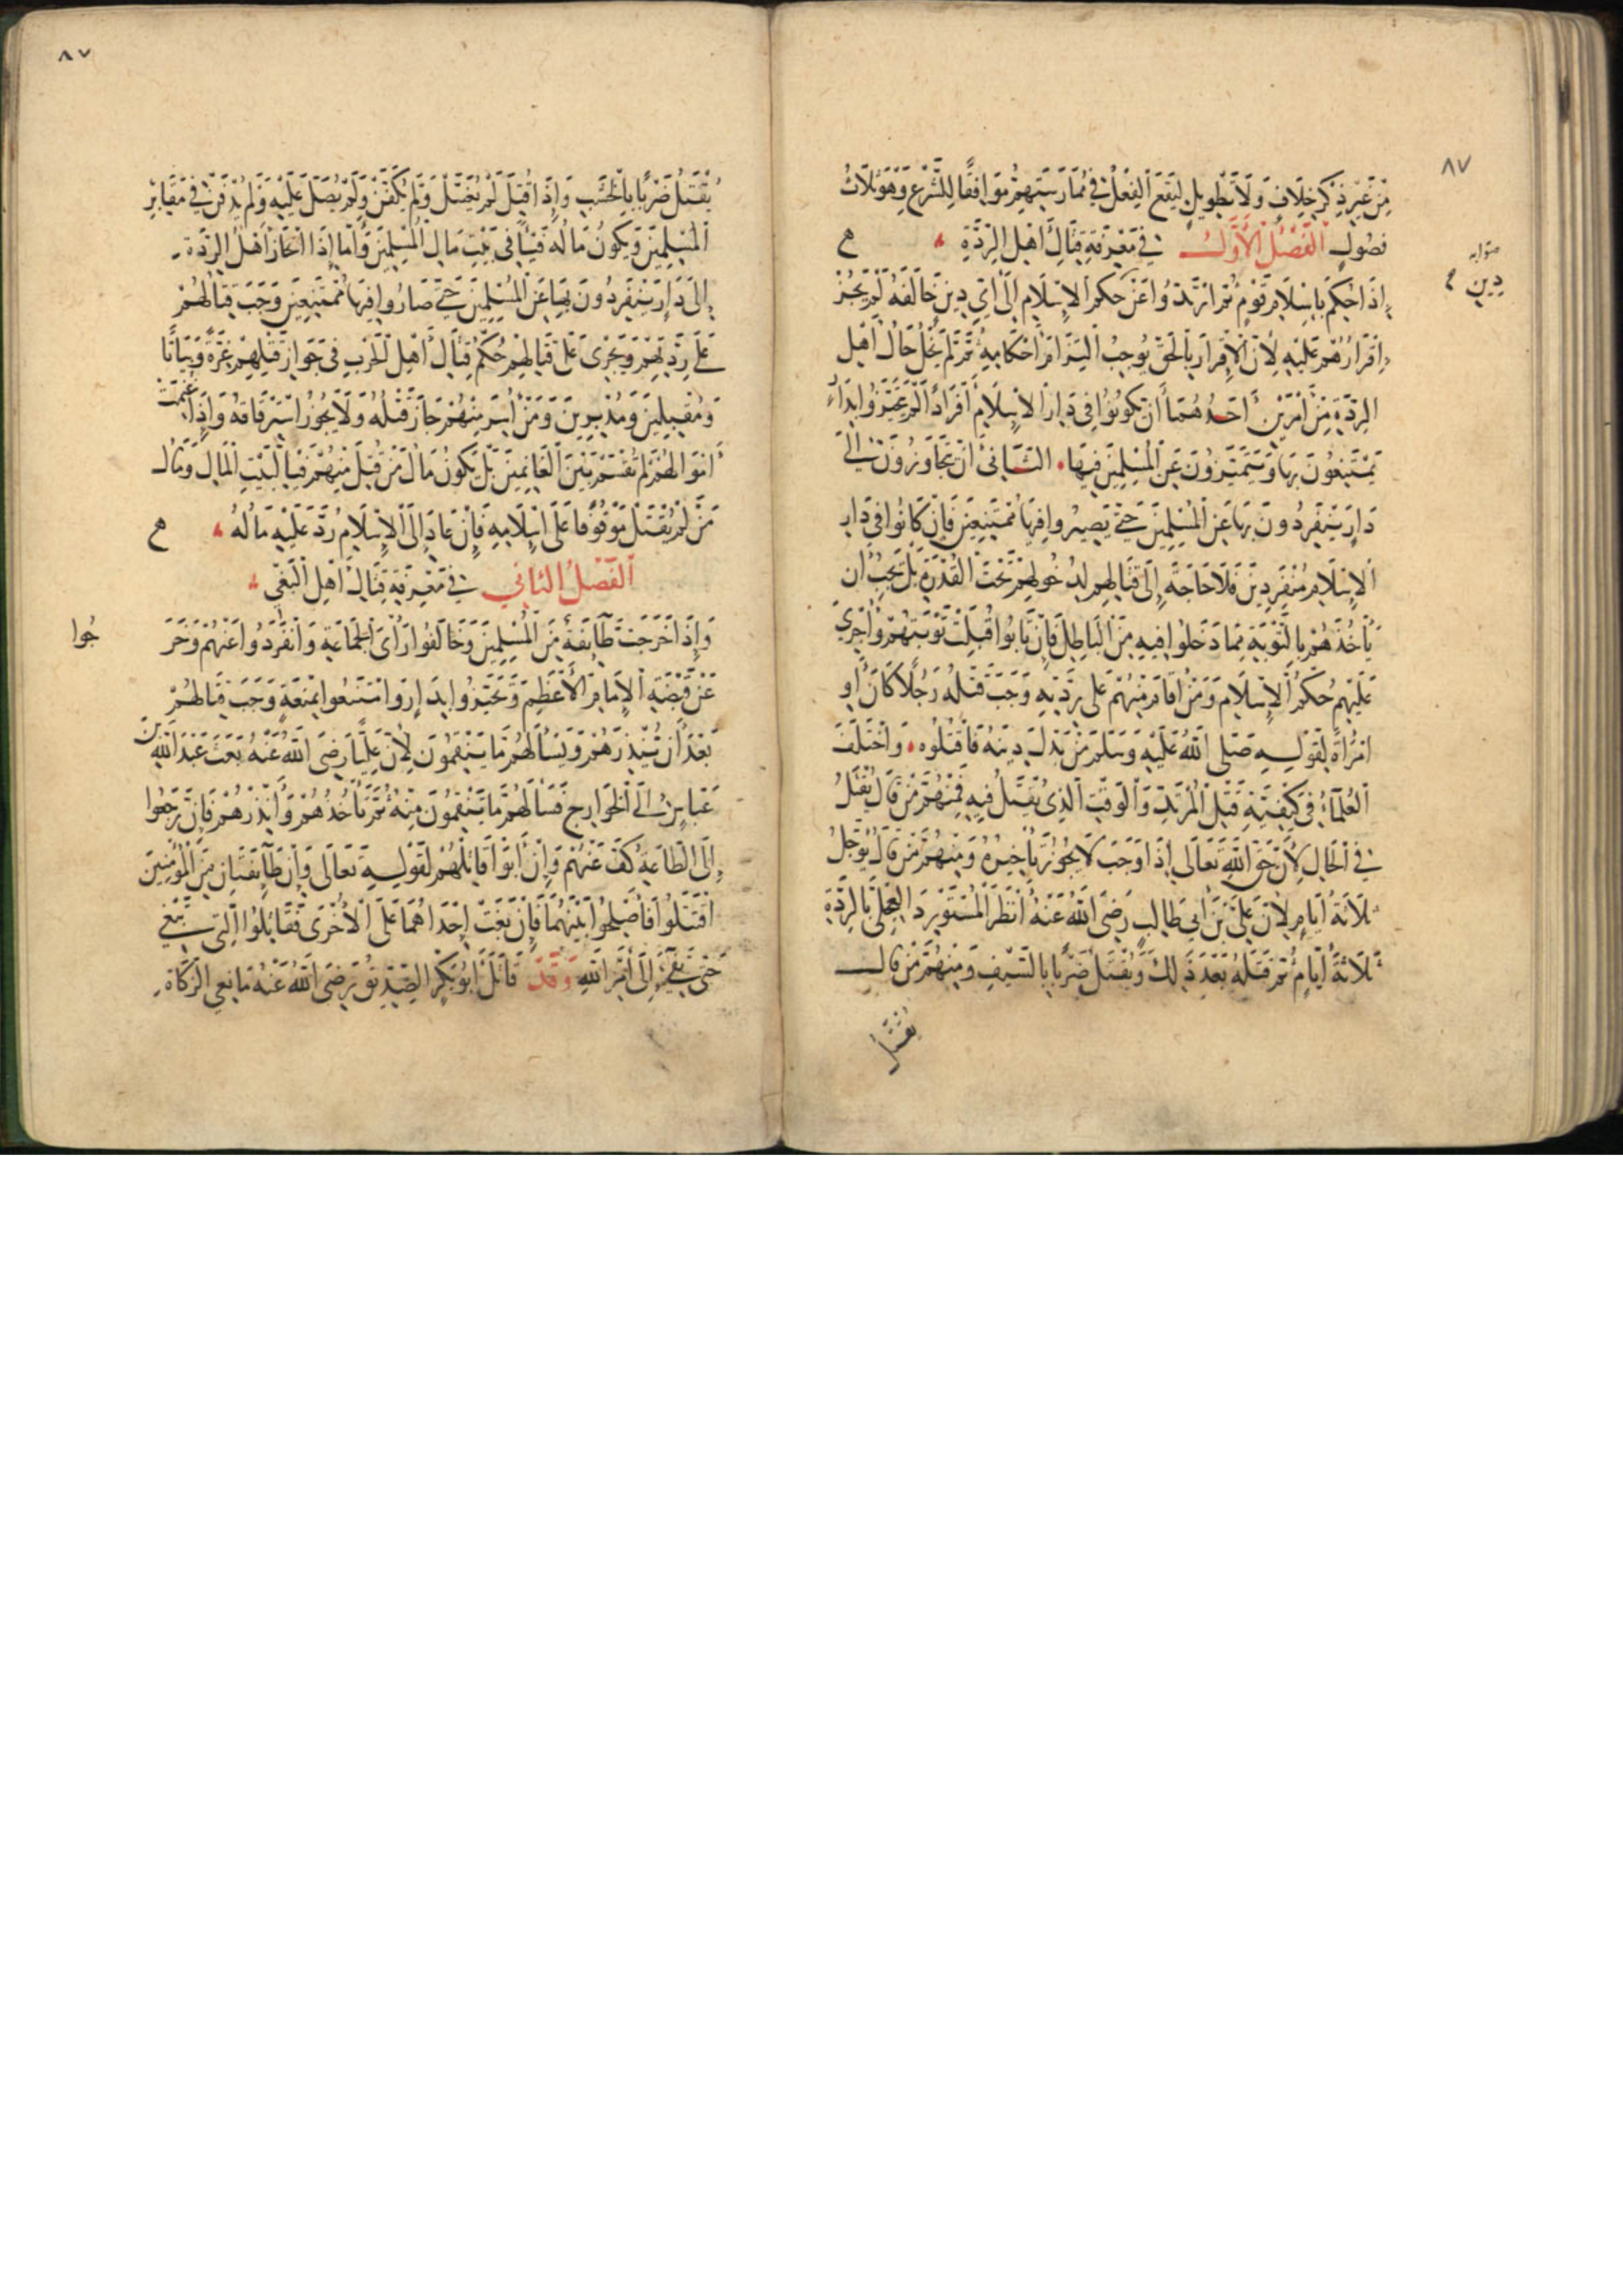 ٨٧
مِنْ غَيْرِ ذِكْرِ خِلَافٍ وَلَا تَطْوِيلٍ لِيَقَعَ الْفِعْلُ فِي مُمَارَسَتِهِمْ مُوَافِقًا لِلشَّرْعِ وَهُوَ ثَلَاثُ
فصُولٍ الْفَصْلُ الْأَوَّلُ فِي مَعْرِفَةِ قِتَالِ أَهْلِ الرِّدَّةِ
صوابه
دين
إِذَا حُكِمَ بِإِسْلَامِ قَوْمٍ ثُمَّ ارْتَدُّوا عَنْ حُكْمِ الْإِسْلَامِ إِلَى أَيِّ دِينٍ خَالَفَهُ لَمْ يَجُزْ
إِقْرَارُهُمْ عَلَيْهِ لِأَنَّ الْإِقْرَارَ بِالْحَقِّ يُوجِبُ الْتِزَامَ أَحْكَامِهِ ثُمَّ لَمْ يَخْلُ حَالُ أَهْلِ
الرِّدَّةِ مِنْ أَمْرَيْنِ أَحَدُهُمَا أَنْ يَكُونُوا فِي دَارِ الْإِسْلَامِ أَفْرَادًا لَمْ يَتَحَيَّزُوا بِدَارٍ
يَمْتَنِعُونَ بِهَا وَيَتَمَيَّزُونَ عَنِ الْمُسْلِمِينَ فِيهَا • الثَّانِي أَنْ يَتَجَاوَزُونَ إِلَى
دَارٍ يَنْفَرِدُونَ بِهَا عَنِ الْمُسْلِمِينَ حَتَّى يَصِيرُوا فِيهَا مُمْتَنِعِينَ فَإِنْ كَانُوا فِي دَارِ
الْإِسْلَامِ مُنْفَرِدِينَ فَلَا حَاجَةَ إِلَى قِتَالِهِمْ لِدُخُولِهِمْ تَحْتَ الْقُدْرَةِ بَلْ يَجِبُ أَنْ
يَأْخُذَهُمْ بِالتَّوْبَةِ مِمَّا دَخَلُوا فِيهِ مِنَ الْبَاطِلِ فَإِنْ تَابُوا قُبِلَتْ تَوْبَتُهُمْ وَأُجْرِيَ
عَلَيْهِمْ حُكْمُ الْإِسْلَامِ وَمَنْ أَقَامَ مِنْهُمْ عَلَى رِدَّتِهِ وَجَبَ قَتْلُهُ رَجُلًا كَانَ أَوِ
امْرَأَةً لِقَوْلِهِ صَلَّى اللهُ عَلَيْهِ وَسَلَّمَ مَنْ بَدَّلَ دِينَهُ فَاقْتُلُوهُ • وَاخْتَلَفَ
الْعُلَمَاءُ فِي كَيْفِيَّةِ قَتْلِ الْمُرْتَدِّ وَالْوَقْتِ الَّذِي يُقْتَلُ فِيهِ فَمِنْهُمْ مَنْ قَالَ يُقْتَلُ
فِي الْحَالِ لِأَنَّ حَقَّ اللهِ تَعَالَى إِذَا وَجَبَ لَا يَجُوزُ تَأْخِيرُهُ وَمِنْهُمْ مَنْ قَالَ يُؤَجَّلُ
ثَلَاثَةَ أَيَّامٍ لِأَنَّ عَلِيَّ بْنَ أَبِي طَالِبٍ رَضِيَ اللهُ عَنْهُ أَنْظَرَ الْمُسْتَوْرِدَ الْعِجْلِيَّ بِالرِّدَّةِ
ثَلَاثَةَ أَيَّامٍ ثُمَّ قَتَلَهُ بَعْدَ ذَلِكَ وَيُقْتَلُ ضَرْبًا بِالسَّيْفِ وَمِنْهُمْ مَنْ قَالَ
يُقْتَلُ
٨٧
يُقْتَلُ ضَرْبًا بِالْخَشَبِ وَإِذَا قُتِلَ لَمْ يُغَسَّلْ وَلَمْ يُكَفَّنْ وَلَمْ يُصَلَّ عَلَيْهِ وَلَمْ يُدْفَنْ فِي مَقَابِرِ
الْمُسْلِمِينَ وَيَكُونُ مَالُهُ فَيْئًا فِي بَيْتِ مَالِ الْمُسْلِمِينَ وَأَمَّا إِذَا انْحَازَ أَهْلُ الرِّدَّةِ
إِلَى دَارٍ يَنْفَرِدُونَ بِهَا عَنِ الْمُسْلِمِينَ حَتَّى صَارُوا فِيهَا مُمْتَنِعِينَ وَجَبَ قِتَالُهُمْ
عَلَى رِدَّتِهِمْ وَيَجْرِي عَلَى قِتَالِهِمْ حُكْمُ قِتَالِ أَهْلِ الْحَرْبِ فِي جَوَازِ قَتْلِهِمْ غِرَّةً وَبَيَاتًا
وَمُقْبِلِينَ وَمُدْبِرِينَ وَمَنْ أُسِرَ مِنْهُمْ جَازَ قَتْلُهُ وَلَا يَجُوزُ اسْتِرْقَاقُهُ وَإِذَا غُنِمَتْ
أَمْوَالُهُمْ لَمْ تُقْسَمْ بَيْنَ الْغَانِمِينَ بَلْ يَكُونُ مَالُ مَنْ قُتِلَ مِنْهُمْ فَيْئًا لِبَيْتِ الْمَالِ وَمَالُ
مَنْ لَمْ يُقْتَلْ مَوْقُوفًا عَلَى إِسْلَامِهِ فَإِنْ عَادَ إِلَى الْإِسْلَامِ رُدَّ عَلَيْهِ مَالُهُ
الْفَصْلُ الثَّانِي فِي مَعْرِفَةِ قِتَالِ أَهْلِ الْبَغْيِ
وَإِذَا خَرَجَتْ طَائِفَةٌ مِنَ الْمُسْلِمِينَ وَخَالَفُوا رَأْيَ الْجَمَاعَةِ وَانْفَرَدُوا عَنْهُمْ وَخَرَ
جُوا
عَنْ قَبْضَةِ الْإِمَامِ الْأَعْظَمِ وَتَحَيَّزُوا بِدَارٍ وَامْتَنَعُوا بِمَنَعَةٍ وَجَبَ قِتَالُهُمْ
بَعْدَ أَنْ يُنْذِرَهُمْ وَيَسْأَلَهُمْ مَا يَنْقِمُونَ لِأَنَّ عَلِيًّا رَضِيَ اللهُ عَنْهُ بَعَثَ عَبْدَ اللهِ بْنَ
عَبَّاسٍ إِلَى الْخَوَارِجِ فَسَأَلَهُمْ مَا يَنْقِمُونَ مِنْهُ ثُمَّ يَأْخُذُهُمْ وَأَنْذَرَهُمْ فَإِنْ رَجَعُوا
إِلَى الطَّاعَةِ كَفَّ عَنْهُمْ وَإِنْ أَبَوْا قَاتَلَهُمْ لِقَوْلِهِ تَعَالَى وَإِنْ طَائِفَتَانِ مِنَ الْمُؤْمِنِينَ
اقْتَتَلُوا فَأَصْلِحُوا بَيْنَهُمَا فَإِنْ بَغَتْ إِحْدَاهُمَا عَلَى الْأُخْرَى فَقَاتِلُوا الَّتِي تَبْغِي
حَتَّى تَفِيءَ إِلَى أَمْرِ اللهِ وَقَدْ قَاتَلَ أَبُو بَكْرٍ الصِّدِّيقُ رَضِيَ اللهُ عَنْهُ مَانِعِي الزَّكَاةِ